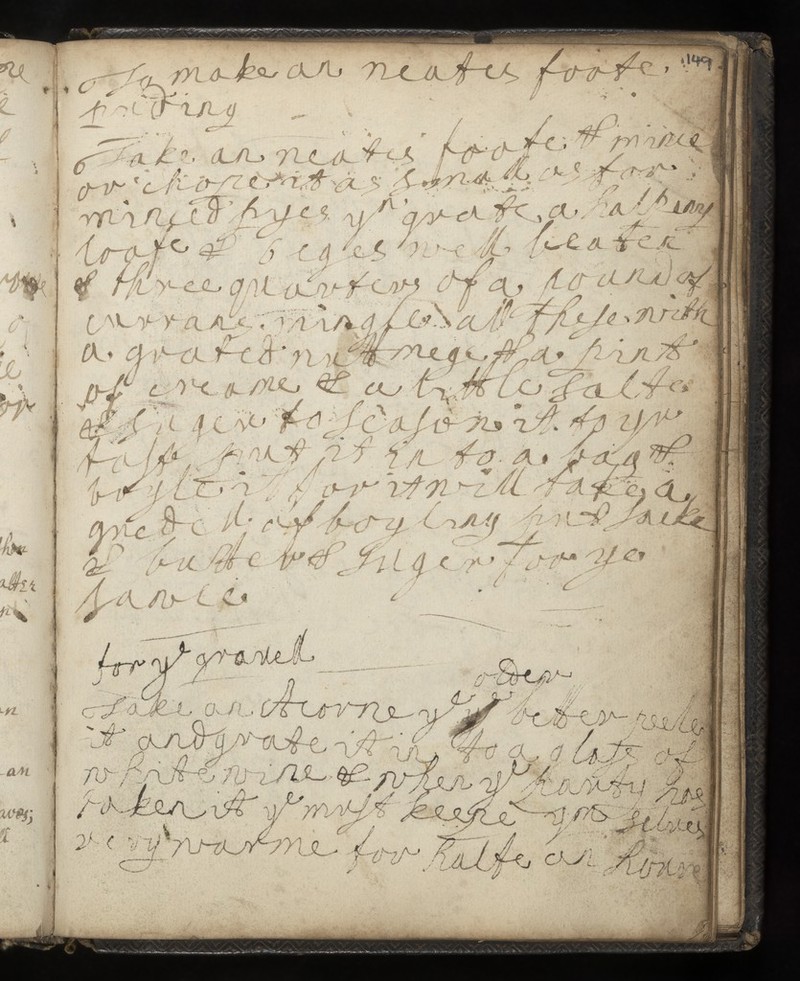 149
To make an neates foote
puding
Take an neates foote & mince
or chope it as small as for
minced pyes yn grate a halpeny
loafe & 6 eges well beaten
& three quarters of a pound of
currans mingle all these with
a grated nutmege & a pint
of creame & a little salte
& suger to season it to yr
tast put it in to a bag &
boyle it for it will take a
gredell of boyling put sacke
& butter & suger for ye
sawce
for ye gravell
Take an Acorne ye older
ye better peele
it and grate it in to a glass of
white wine & when ye party has
taken it ye must keepe ym selves
very warme for halfe an houre